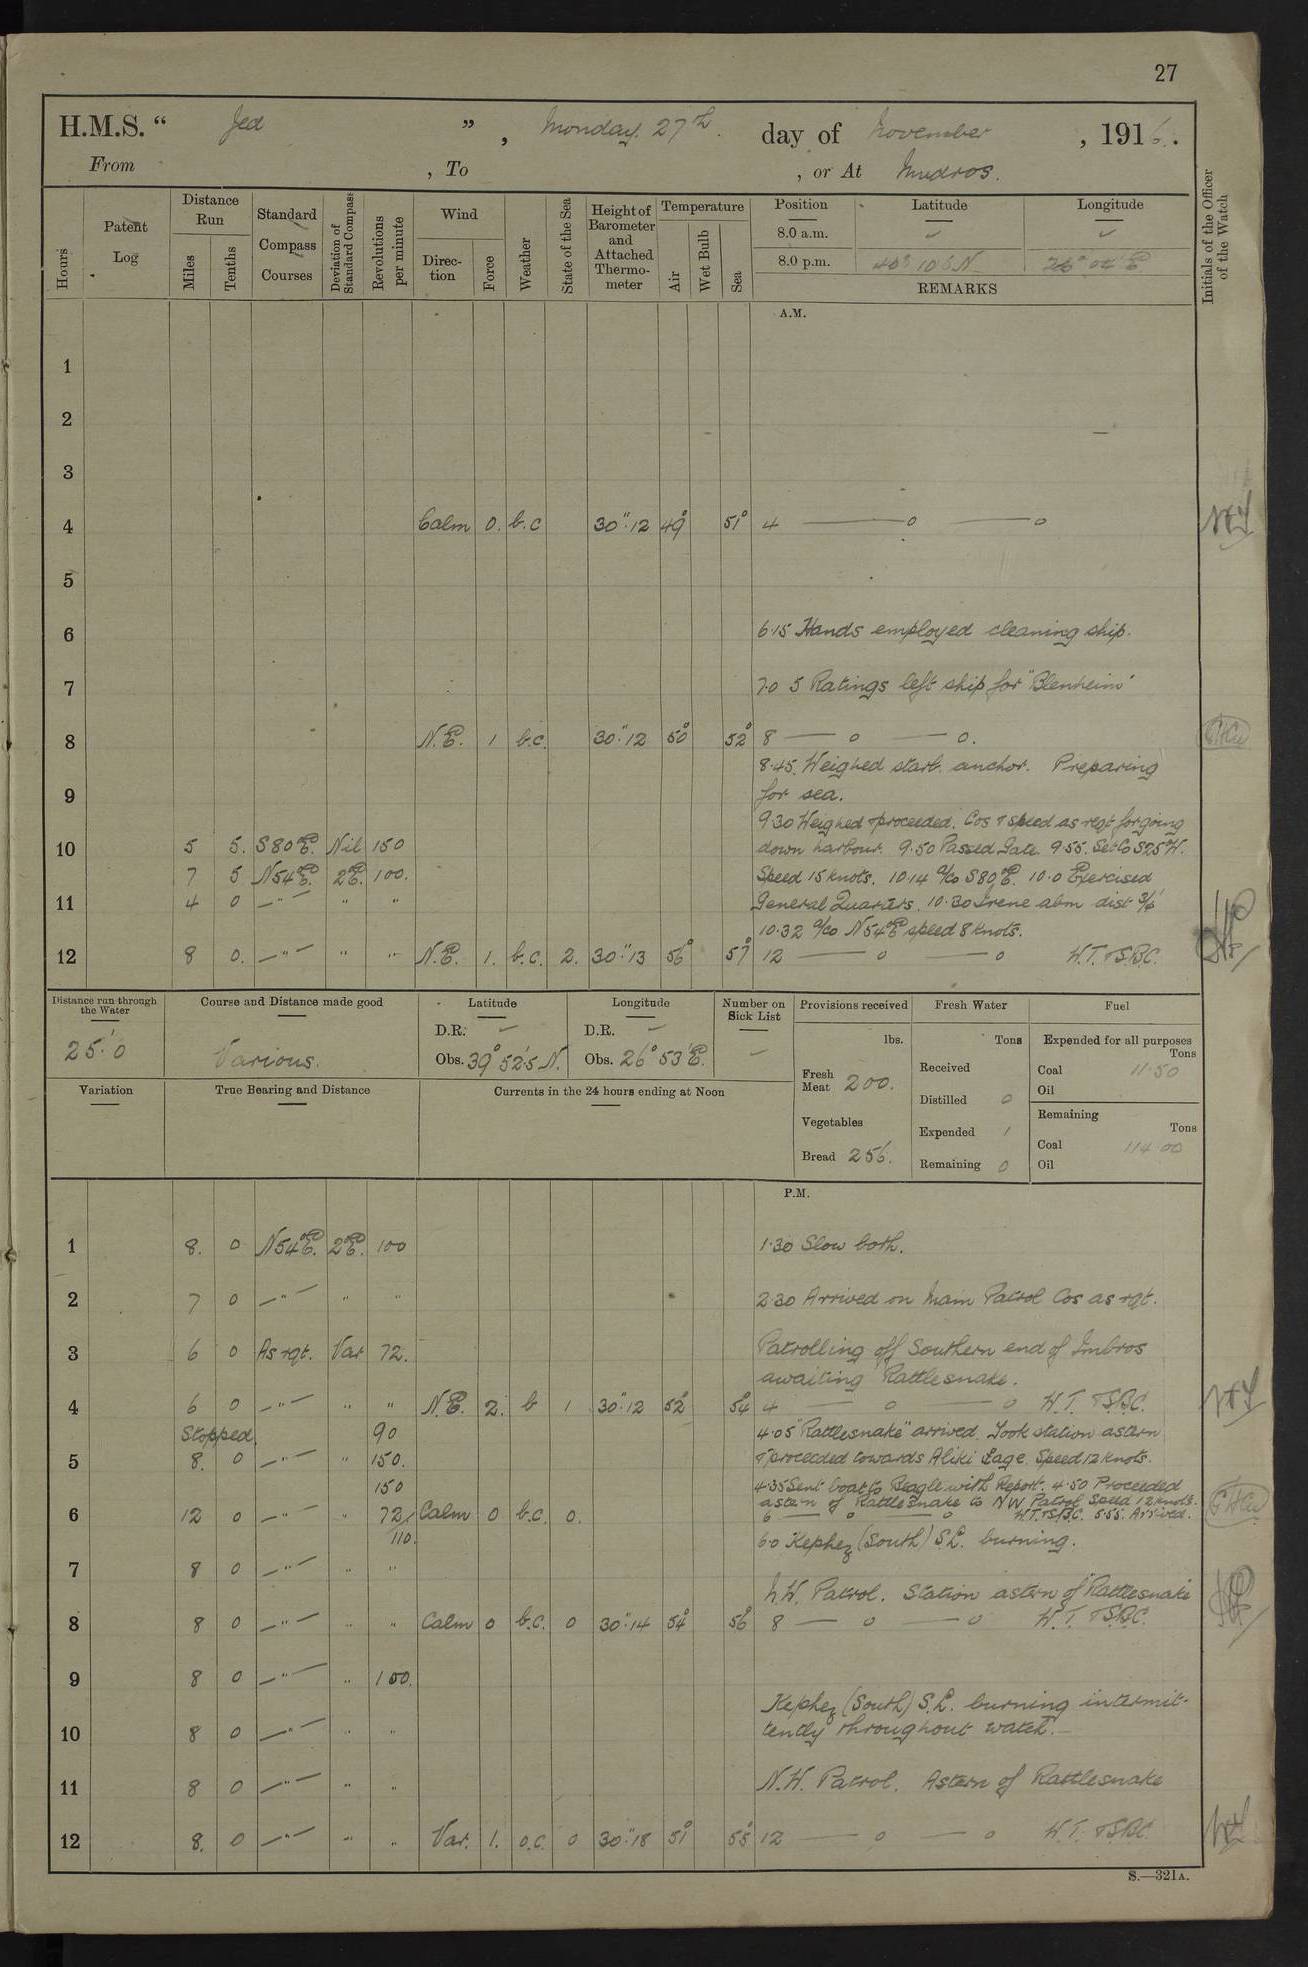 27
H.M.S. " Jed " , Monday 27th day of November , 1916.
From , To , or At Mudros.
Hours
Patent Log
Distance Run
Miles
Tenths
Standard Compass Courses
Deviation of Standard Compass
Revolutions per minute
Wind
Direction
Force
Weather
State of the Sea
Height of Barometer and Attached Thermometer
Temperature
Air
Wet Bulb
Sea
Position Latitude Longitude
8.0 a.m.
8.0 p.m. 40° 10'5 N 26° 02' E
REMARKS
Initials of the Officer of the Watch
A.M.
1
2
3
4 Calm 0. b.c 30".12 49° 51° 4 — o — o
5
6 6.15 Hands employed cleaning ship.
7 7.0 5 Ratings left ship for "Blenheim"
8 N.E. 1 b.c. 30".12 50° 52° 8 — o — o.
8.45. Weighed starb. anchor. Preparing
9 for sea.
9.30 Weighed & proceeded. Cos & speed as reqt for going
10 5 5. S80°E. Nil 150 down harbour. 9.50 Passed Gate. 9.55. Set Co S25°W.
7 5 N54°E. 2°E. 100. Speed 15 knots. 10.14 a/co S80°E. 10.0 Exercised
11 4 0 —"— " " General Quarters. 10.30 Irene abm dist
10.32 a/co N54°E speed 8 knots.
12 8 0. —"— " " N.E. 1. b.c. 2. 30".13 56° 57° 12 — o — o W.T. & S.B.C.
Distance run through the Water
25'.0
Course and Distance made good
Various.
Latitude
D.R.
Obs. 39° 52'.5 N.
Longitude
D.R.
Obs. 26° 53' E.
Number on Sick List
Provisions received
lbs.
Fresh Meat 200.
Vegetables
Bread 256.
Fresh Water
Tons
Received
Distilled 0
Expended 1
Remaining 0
Fuel
Expended for all purposes
Tons
Coal 11.50
Oil
Remaining
Tons
Coal 114 00
Oil
Variation
True Bearing and Distance
Currents in the 24 hours ending at Noon
P.M.
1 8. 0 N54°E. 2°E. 100 1.30 Slow both.
2 7 0 —"— " " 2.30 Arrived on Main Patrol Cos as rqt.
3 6 0 As rqt. Var 72. Patrolling off Southern end of Imbros
awaiting Rattlesnake.
4 6 0 —"— " " N.E. 2. b 1 30".12 52° 54° 4 — o — o W.T. & S.B.C.
Stopped. 90 4.05 "Rattlesnake" arrived. Took station astern
5 8. 0 —"— " 150. & proceeded towards Aliki Lage. Speed 12 knots.
150 4.35 Sent boat to Beagle with Report. 4.50 Proceeded
astern of Rattlesnake to NW Patrol Speed 12 knots.
6 12 0 —"— " 72/110. Calm 0 b.c. 0. 6 — o — o W.T. & S.B.C. 5.55. Arrived.
6.0 Kephez (South) S.L. burning.
7 8 0 —"— " "
N.W. Patrol. Station astern of "Rattlesnake
8 8 0 —"— " " Calm 0 b.c. 0 30".14 54° 56° 8 — o — o W.T. & S.B.C.
9 8 0 —"— " 100.
Kephez (South) S.L. burning intermit-
10 8 0 —"— " " tently throughout watch.
11 8 0 —"— " " N.W. Patrol. Astern of Rattlesnake
12 8. 0 —"— " " Var. 1. o.c. 0 30".18 51° 55° 12 — o — o W.T. & S.B.C.
S.—321A.